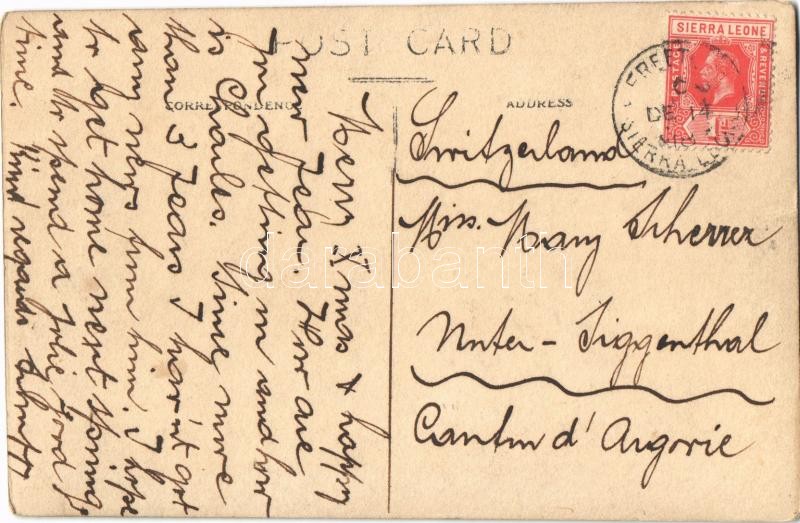 POST CARD
CORRESPONDENCE
ADDRESS
SIERRA LEONE
POSTAGE
& REVENUE
FREET
DE 14
SIERRA L
Merry Xmas & happy
new Year. How are
you getting on and how
is Charles. Since more
than 3 Years I hav'nt got
any news from him. I hope
to get home next spring
and to spend a jolie good
time.
Kind regards
Switzerland
Miss. Mary Scherrer
Unter-Siggenthal
Canton d'Argovie
darabanth